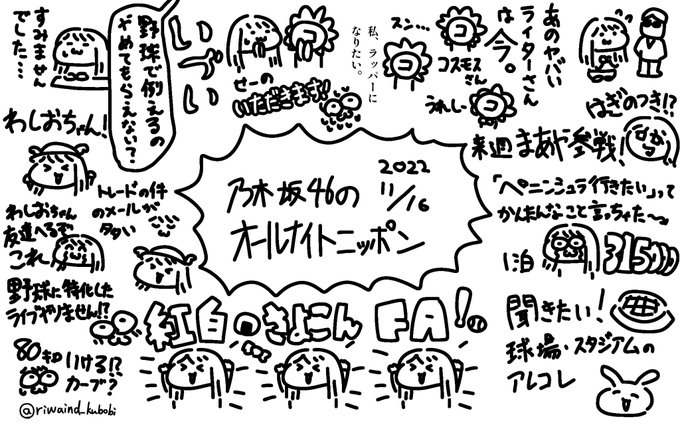 すみません
でした…
野球で例えるの
やめてもらえない?
いづい
せーの
いただきます!
私、ラッパーに
なりたい。
スン…
コスモス
さん
うれしー
コ
コ
コ
あのヤバい
ライターさん
は今。
はぎのつき!?
わしおちゃん!
トレードの件
のメールが
多い
わしおちゃん
友達へるで
これ
野球に特化した
ライブやりません!?
80キロいける!?
カーブ?
@riwaind_kubobi
2022
11/16
乃木坂46の
オールナイトニッポン
来週まあや参戦!
なかっ
「ペニンシュラ行きたい」って
かんたんなこと言っちゃた〜
1泊
315000
聞きたい!
球場・スタジアムの
アレコレ
紅白のきよこん FA!